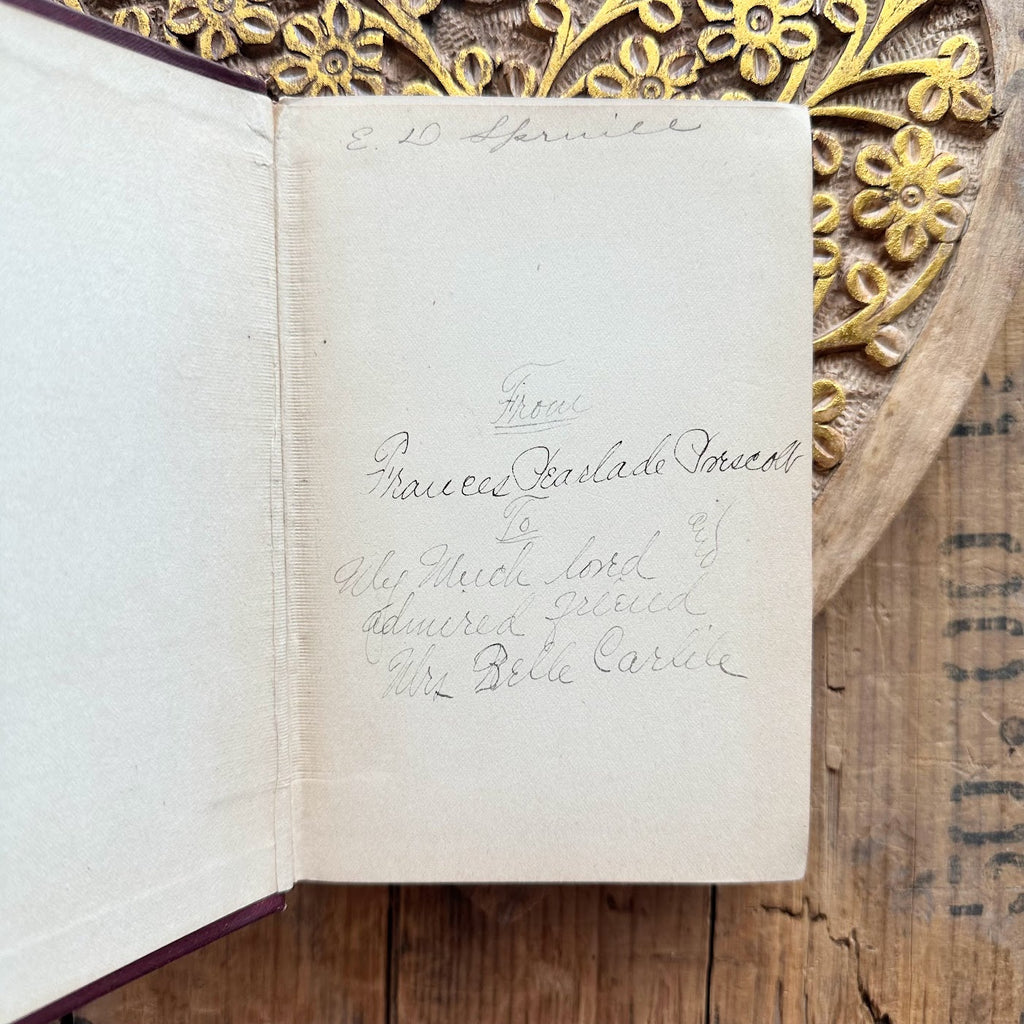 E. D Spruill
From
Frances Pearlade Prescott
To
My Much loved &
admired friend
Mrs Belle Carlile